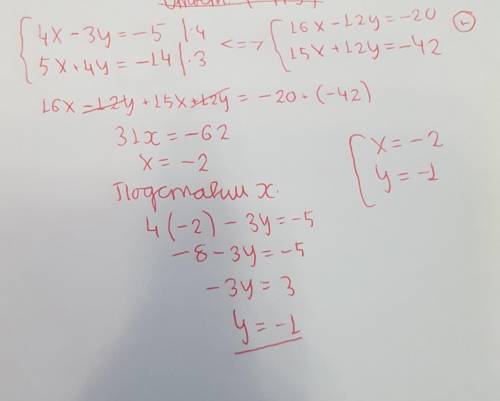 4x - 3y = -5 | · 4
5x + 4y = -14 | · 3
<=>
16x - 12y = -20
15x + 12y = -42
+
16x - 12y + 15x + 12y = -20 + (-42)
31x = -62
x = -2
Подставим x.
4(-2) - 3y = -5
-8 - 3y = -5
-3y = 3
y = -1
x = -2
y = -1